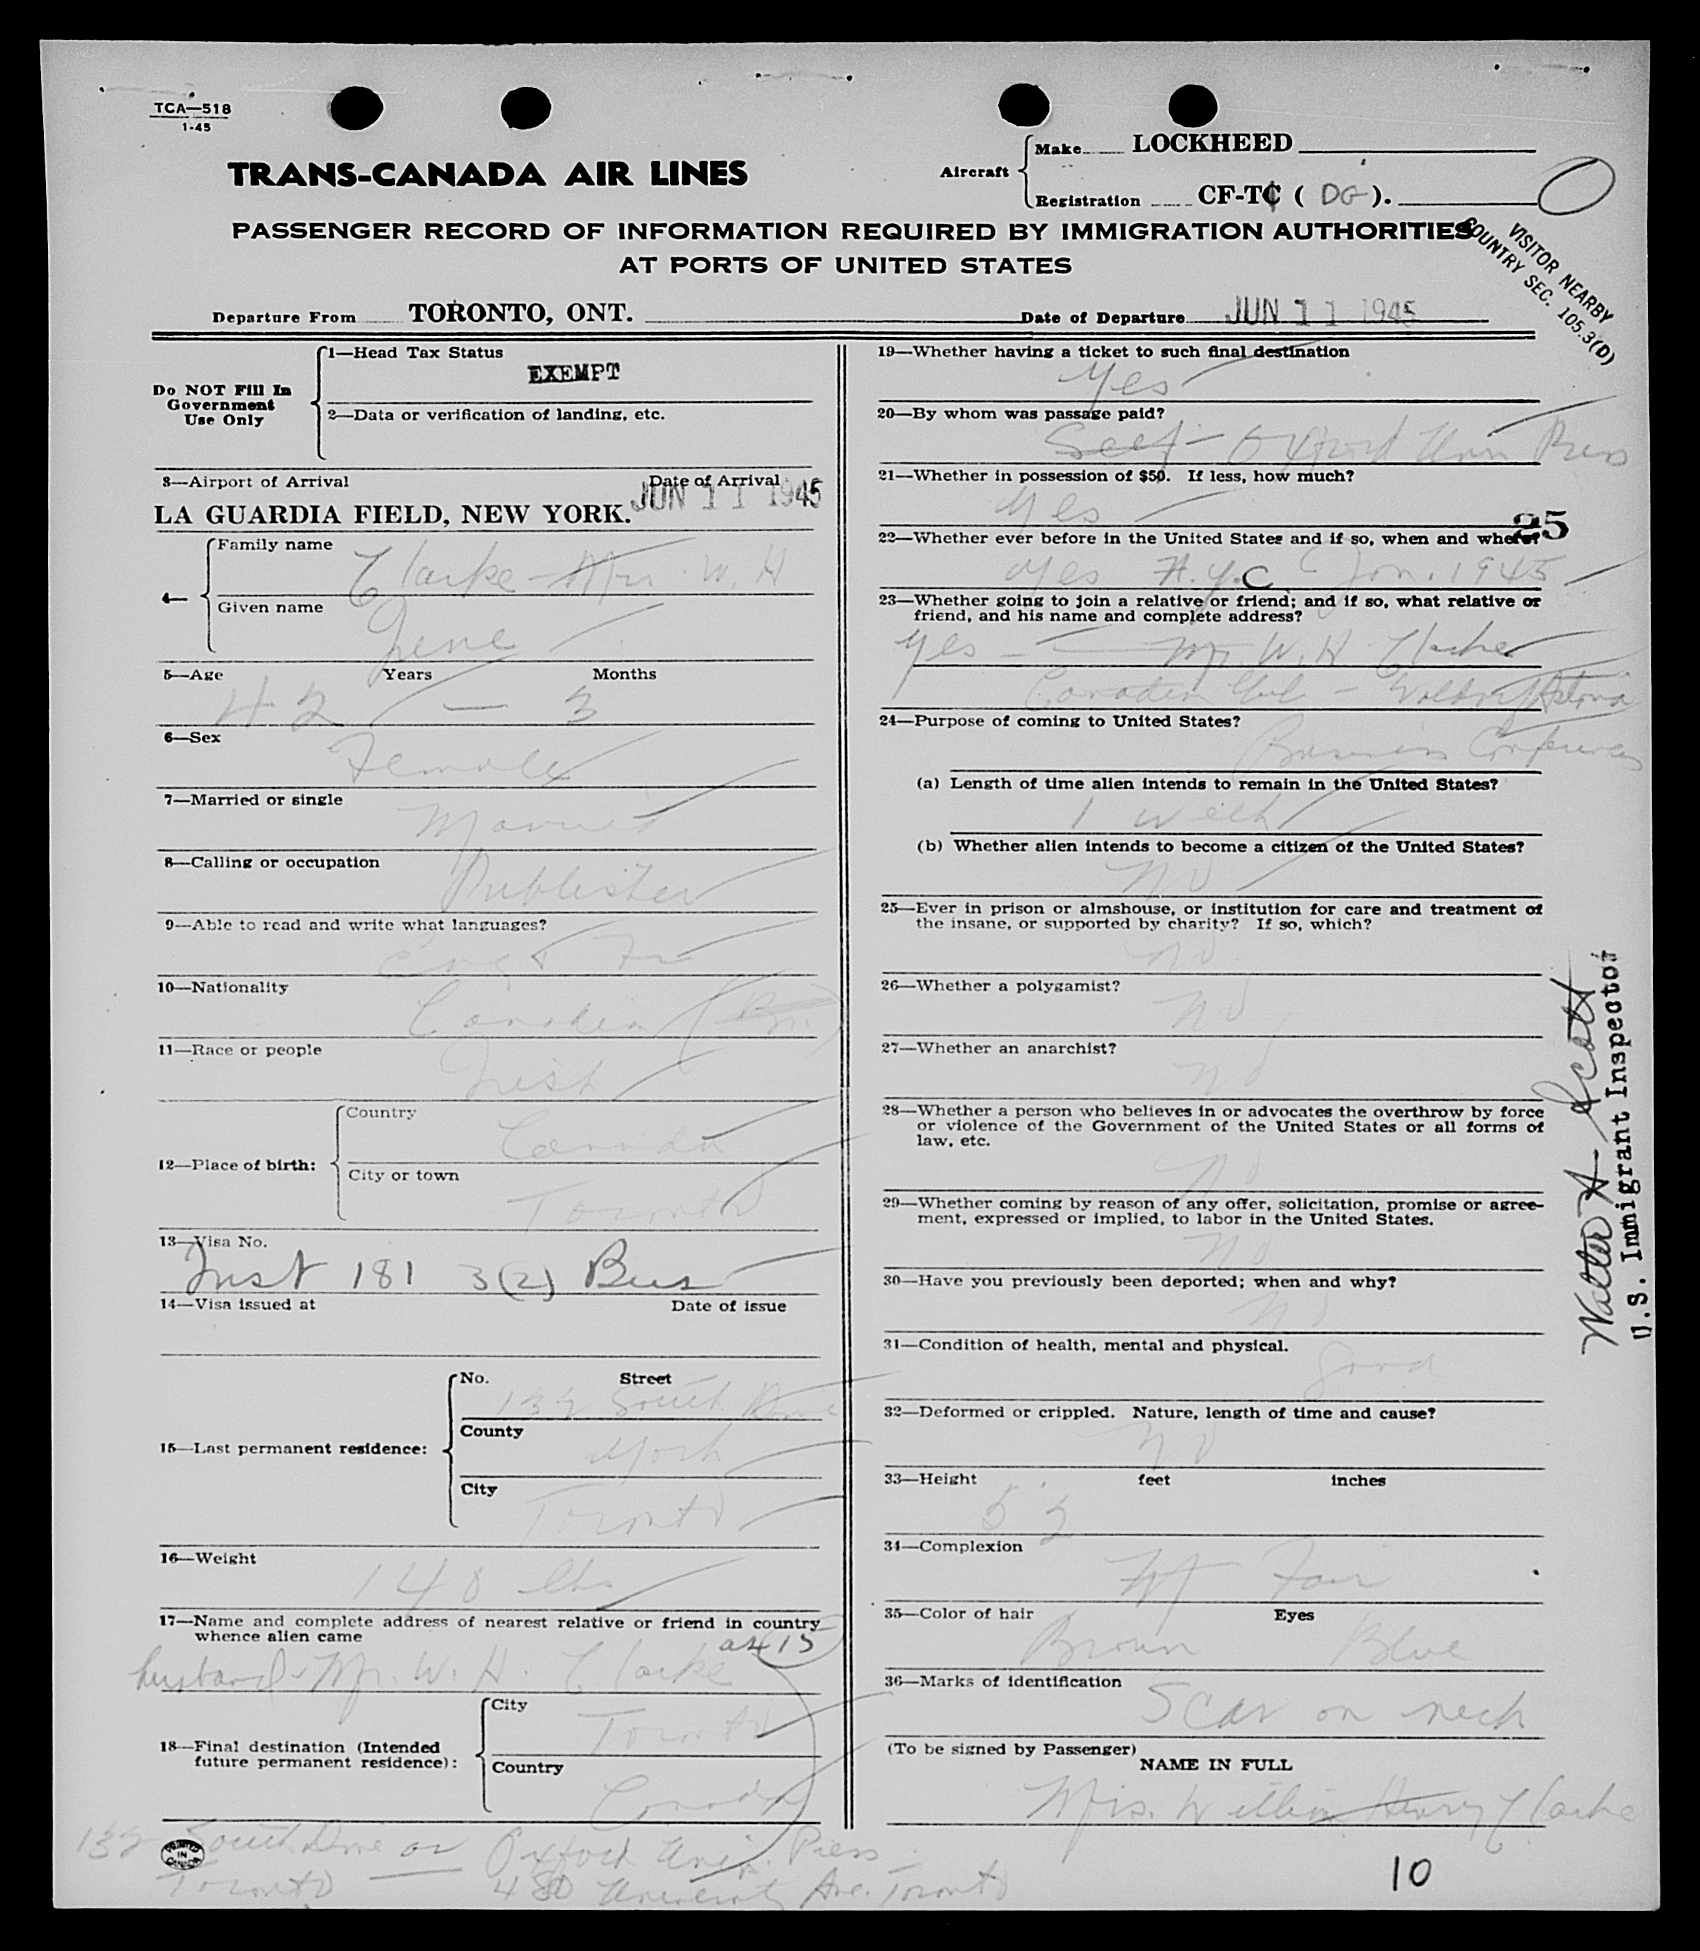 TCA—518
1-45
Aircraft
Make LOCKHEED
Registration CF-TC ( DG ).
TRANS-CANADA AIR LINES
PASSENGER RECORD OF INFORMATION REQUIRED BY IMMIGRATION AUTHORITIES
AT PORTS OF UNITED STATES
VISITOR NEARBY
COUNTRY SEC. 105.3(D)
Departure From TORONTO, ONT. Date of Departure JUN 11 1945
Do NOT Fill In
Government
Use Only
1—Head Tax Status
EXEMPT
2—Data or verification of landing, etc.
3—Airport of Arrival Date of Arrival
LA GUARDIA FIELD, NEW YORK. JUN 11 1945
4—
Family name
Clarke - Mrs. W. H
Given name
Irene
5—Age Years Months
42 — 3
6—Sex
Female
7—Married or single
Married
8—Calling or occupation
Publisher
9—Able to read and write what languages?
Eng & Fr
10—Nationality
Canadian (Br.)
11—Race or people
Irish
12—Place of birth:
Country
Canada
City or town
Toronto
13—Visa No.
Inst 181 3(2) Bus
14—Visa issued at Date of issue
15—Last permanent residence:
No. Street
132 South Drive
County
York
City
Toronto
16—Weight
148 lbs
17—Name and complete address of nearest relative or friend in country
whence alien came
as 15
husband - Mr. W. H. Clarke
18—Final destination (Intended
future permanent residence):
City
Toronto
Country
Canada
132 South Drive or Oxford Univ. Press
Toronto 480 University Ave. Toronto
PRINTED IN CANADA
19—Whether having a ticket to such final destination
Yes
20—By whom was passage paid?
Self - Oxford Univ Press
21—Whether in possession of $50. If less, how much?
Yes
25
22—Whether ever before in the United States and if so, when and where?
Yes N.Y.C Jan. 1945
23—Whether going to join a relative or friend; and if so, what relative or
friend, and his name and complete address?
Yes — Mr. W. H Clarke
Canadian Club - Waldorf Astoria
24—Purpose of coming to United States?
Business Conferences
(a) Length of time alien intends to remain in the United States?
1 week
(b) Whether alien intends to become a citizen of the United States?
No
25—Ever in prison or almshouse, or institution for care and treatment of
the insane, or supported by charity? If so, which?
No
26—Whether a polygamist?
No
27—Whether an anarchist?
No
28—Whether a person who believes in or advocates the overthrow by force
or violence of the Government of the United States or all forms of
law, etc.
No
29—Whether coming by reason of any offer, solicitation, promise or agree-
ment, expressed or implied, to labor in the United States.
No
30—Have you previously been deported; when and why?
No
31—Condition of health, mental and physical.
Good
32—Deformed or crippled. Nature, length of time and cause?
No
33—Height feet inches
5' 2
34—Complexion
Fair
35—Color of hair Eyes
Brown Blue
36—Marks of identification
Scar on neck
(To be signed by Passenger)
NAME IN FULL
Mrs. William Henry Clarke
10
Walter A Scott
U.S. Immigrant Inspector